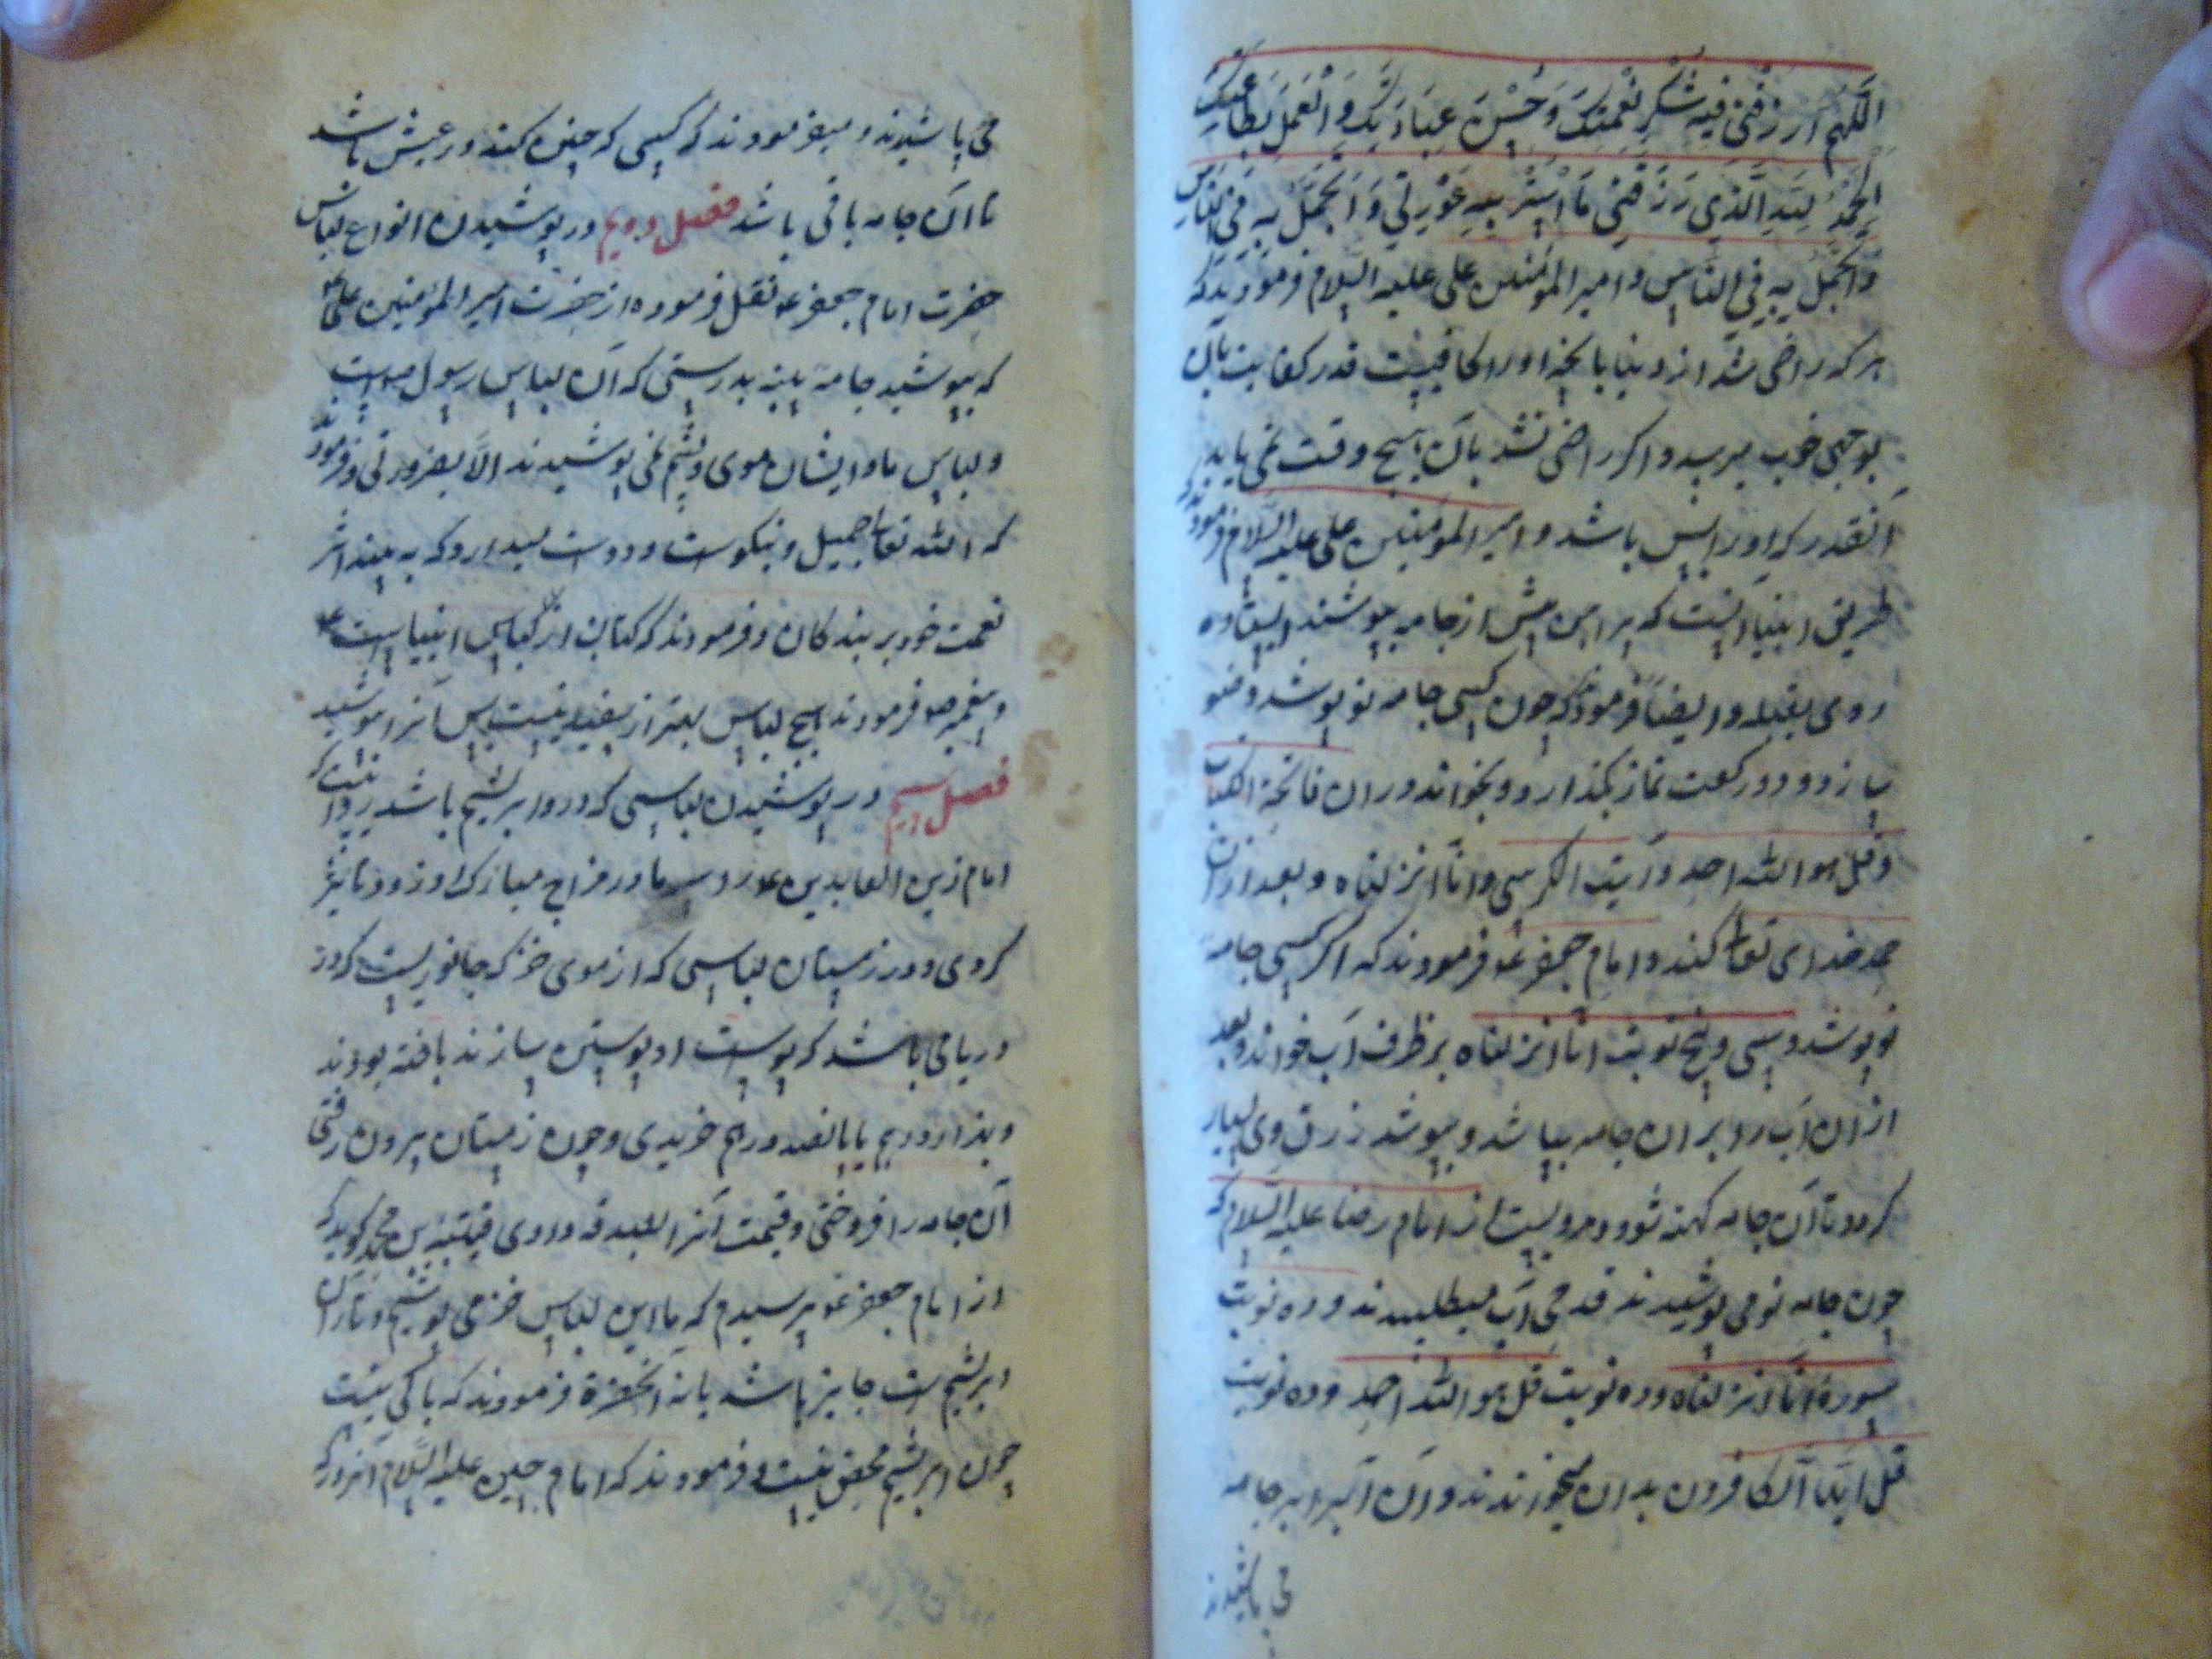 اللهم ارزقنی فیه شکر نعمتک و حسن عبادتک و العمل بطاعتک
الحمد لله الذی رزقنی ما استر به عورتی و اتجمل به فی الناس
و اتجمل به فی الناس و امیر المؤمنین علی علیه السلام فرمودند که
هرکه راضی شد از دنیا بانچه او را کافیست قدر کفایت بآن
بوجهی خوب میرسد و اگر راضی نشد بآن هیچ وقت نمی یابد
آنقدر که او را بس باشد و امیر المؤمنین علی علیه السلام فرمودند که
طریق انبیا آنست که پیراهن پیش از جامه بپوشند ایستاده
روی بقبله و ایضاً فرمودند که چون کسی جامه نو پوشد وضو
سازد و دو رکعت نماز بگذارد و بخواند در ان فاتحة الکتاب
و قل هو الله احد و آیت الکرسی و انا انزلناه و بعد از ان
حمد خدای تعالی کند و امام جعفر ع فرمودند که اگر کسی جامه
نو پوشد و سی و پنج نوبت انا انزلناه بر ظرف آب خواند و بعد
از ان آب را بر ان جامه بپاشد و بپوشد رزق وی بسیار
گردد تا آن جامه کهنه شود و مرویست از امام رضا علیه السلام که
چون جامه نو می پوشیدند قدحی آب میطلبیدند و ده نوبت
سورهٔ انا انزلناه و ده نوبت قل هو الله احد و ده نوبت
قل یا ایها الکافرون بدان میخواندند و آن آب را بر جامه
می پاشیدند
می پاشیدند و میفرمودند که کسی که چنین کند در عیش باشد
تا آن جامه باقی باشد فصل دویم در پوشیدن انواع لباس
حضرت امام جعفر ع نقل فرموده از حضرت امیر المؤمنین علی ع
که بپوشید جامه پنبه بدرستی که آن لباس رسول ص است
و لباس ما و ایشان موی و پشم نمی پوشیدند الا بضرورتی و فرمودند
که الله تعالی جمیل و نیکوست و دوست میدارد که به بیند اثر
نعمت خود بر بندگان و فرمودند که کتان از لباس انبیاست ع
و پیغمبر ص فرمودند هیچ لباس بهتر از سفید نیست پس آنرا بپوشید
فصل سیم در پوشیدن لباسی که درو ابریشم باشد
امام زین العابدین ع سرما در مزاج مبارک او زود تاثیر
کردی و در زمستان لباسی که از موی خز که جانوریست که در
دریا می باشد که پوست او پوستین سازند بافته بودند
و بهزار درهم یا پانصد درهم خریدی و چون زمستان بیرون رفتی
آن جامه را فروختی و قیمت آنرا بصدقه دادی قتیبه بن محمد گوید که
از امام جعفر ع پرسیدم که ما این لباس خز می پوشیم و تار آن
ابریشم است جایز باشد یا نه آنحضرة فرمودند که باکی نیست
چون ابریشم محض نیست و فرمودند که امام حسین علیه السلام آنروز که